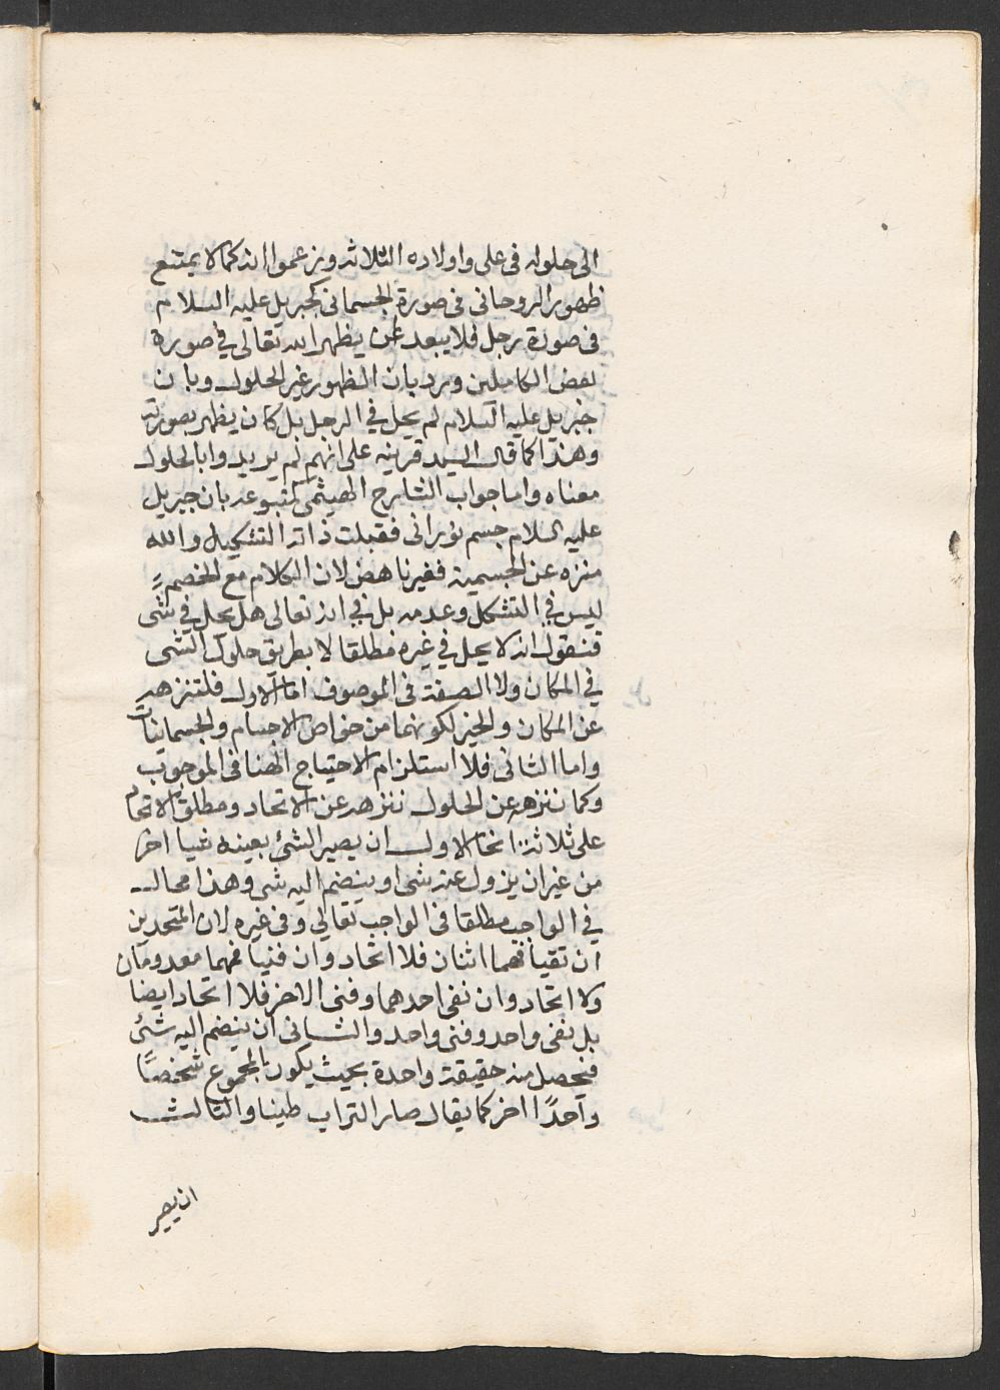 الى حلوله فى على واولاده الثلاثه وزعموا انه كما لا يمتنع
ظهور الروحانى فى صورة الجسمانى كجبريل عليه السلام
فى صورة رجل فلا يبعد ان يظهر الله تعالى في صورة
بعض الكاملين ويرد بان الظهور غير الحلول وبان
جبريل عليه السلام لم يحل في الرجل بل كان يظهر بصورته
وهذا كما قال السيد قرينة على انهم لم يريدوا بالحلول
معناه واما جواب الشارح الهيثمى كمتبوعه بان جبريل
عليه السلام جسم نورانى فقبلت ذاته التشكيل والله
منزه عن الجسمية فغير ناهض لان الكلام مع الخصم
ليس في التشكل وعدمه بل في انه تعالى هل يحل في شى
فنقول انه لا يحل في غيره مطلقا لا بطريق حلول الشى
في المكان ولا الصفة فى الموصوف اما الاول فلتنزهه
عن المكان والحيز لكونهما من خواص الاجسام والجسمانيات
واما الثانى فلاستلزام الاحتياج المنافى للوجوب
وكما ننزهه عن الحلول ننزهه عن الاتحاد ومطلق الاتحاد
على ثلاثة انحا الاول ان يصير الشئ بعينه شيا اخر
من غير ان يزول عنه شى او ينضم اليه شى وهذا محال
في الواجب مطلقا فى الواجب تعالى وفى غيره لان المتحدين
ان بقيا فهما اثنان فلا اتحاد وان فنيا فهما معدومان
ولا اتحاد وان بقى احدهما وفنى الاخر فلا اتحاد ايضا
بل بقى واحد وفنى واحد والثانى ان ينضم اليه شئ
فيحصل منه حقيقة واحدة بحيث يكون المجموع شخصًا
واحدًا اخر كما يقال صار التراب طينا والثالث
ان يصير